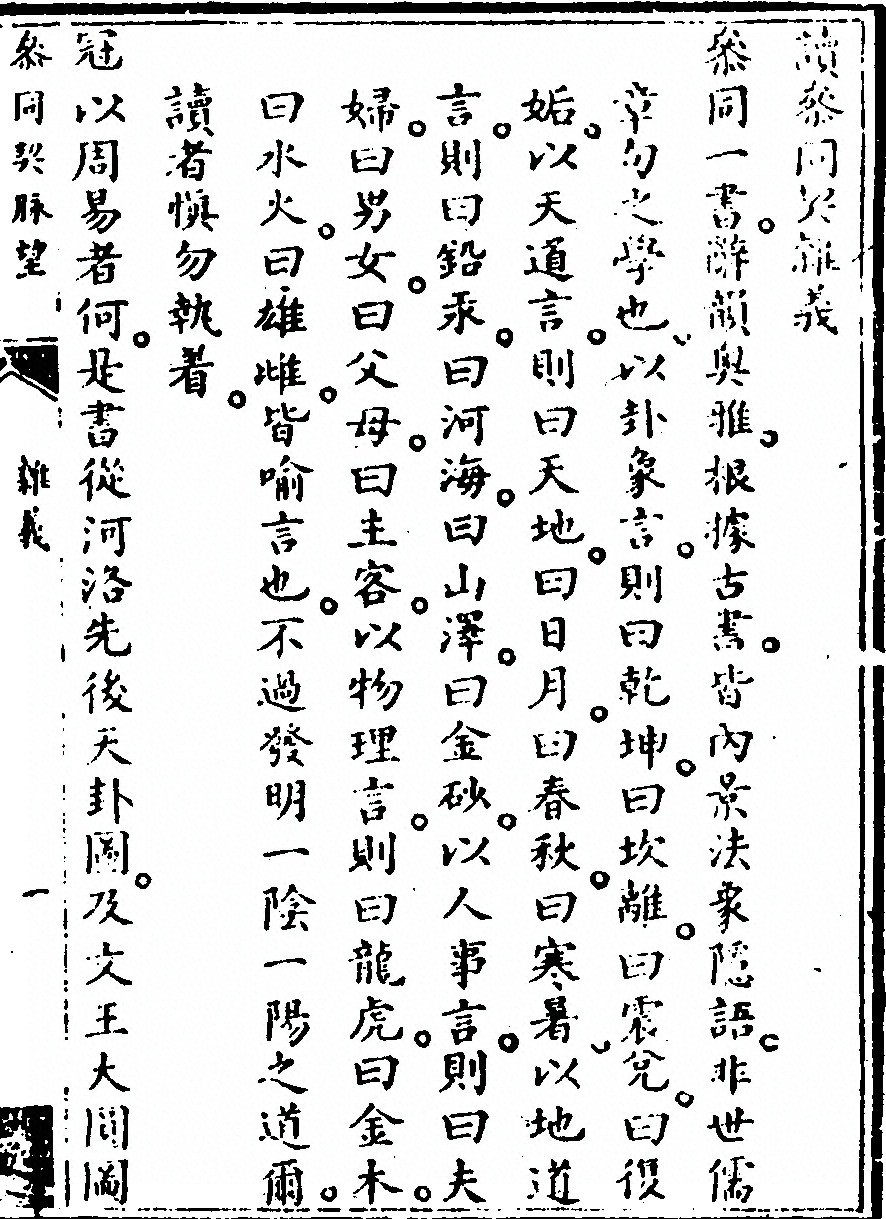 讀叅同契雜義
叅同一書辭韻奥雅根據古書皆内景法象隱語非世儒
章句之學也以卦象言則曰乾坤曰坎離曰震兌曰復
姤以天道言則曰天地曰日月曰春秋曰寒暑以地道
言則曰鉛汞曰河海曰山澤曰金砂以人事言則曰夫
婦曰男女曰父母曰主客以物理言則曰龍虎曰金木
曰水火曰雄雌皆喻言也不過發明一陰一陽之道爾
讀者慎勿執着
冠以周易者何是書從河洛先後天卦圖及文王大圓圖
叅同契脉望
雜義
一